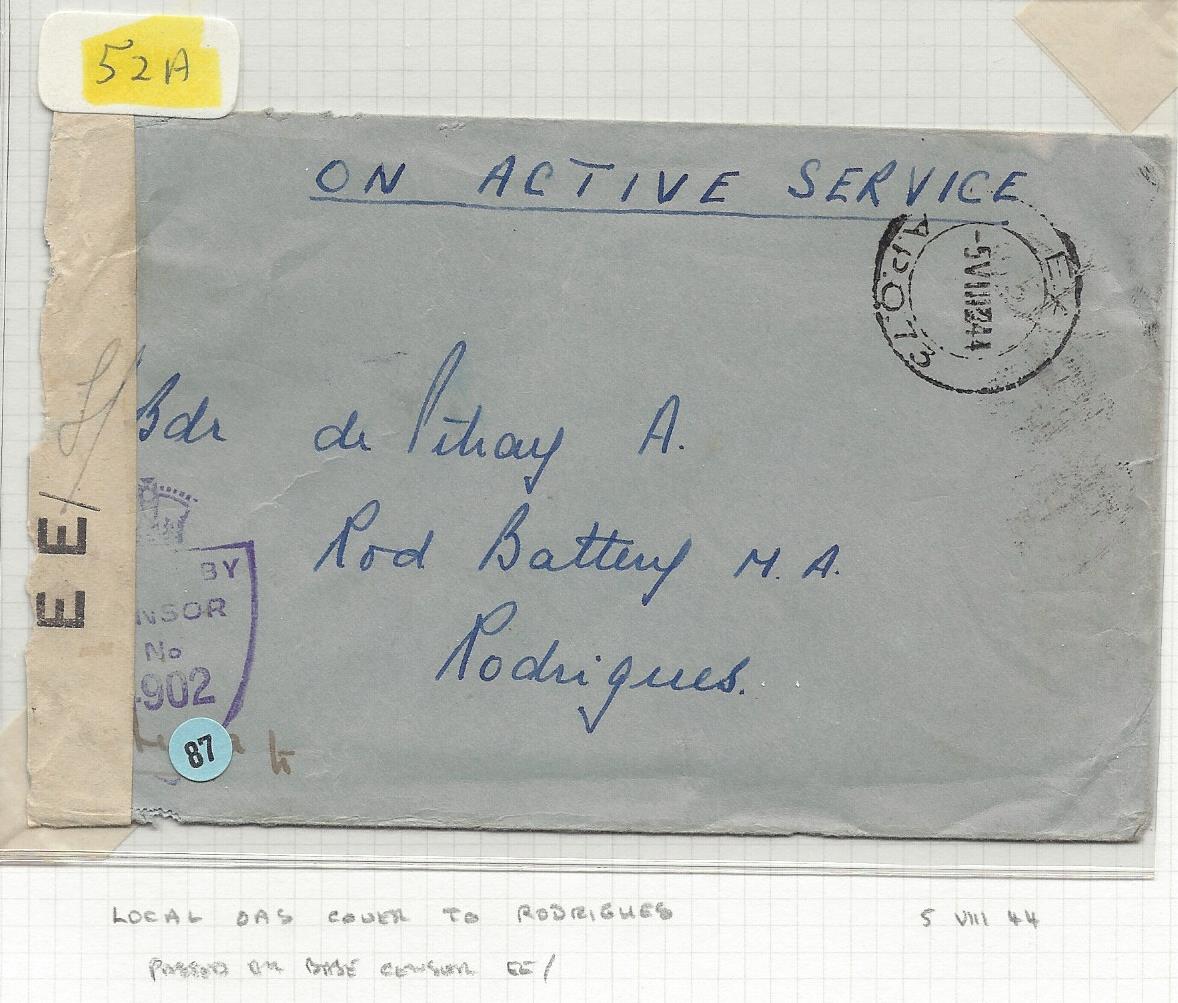 52A
ON ACTIVE SERVICE
EX A.P.O.
-5 VIII 44
Bdr de Pitray A.
Rod Battery M.A.
Rodrigues.
E E /
BY
NSOR
No
902
87
LOCAL OAS COVER TO RODRIGUES
5 VIII 44
PASSED BY BASE CENSOR EE/